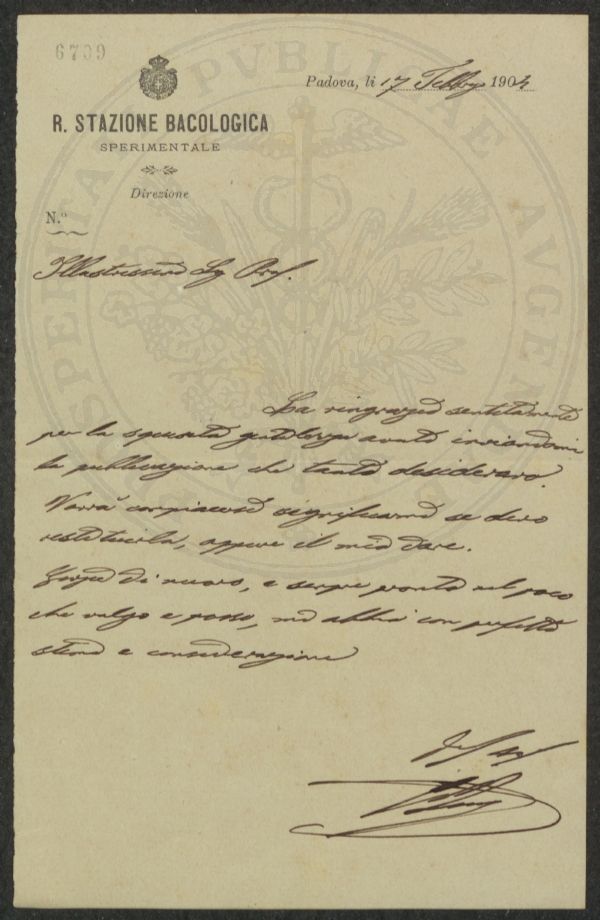 6709
Padova, li 17 Febbrº 1904
R. STAZIONE BACOLOGICA
SPERIMENTALE
Direzione
N.º
PROSPERITATI PVBLICAE AVGENDAE
Illustrissimo Sig Prof.
La ringrazio sentitamente
per la squisita gentilezza avuta inviandomi
la pubblicazione che tanto desideravo.
Vorrà compiacersi significarmi se devo
restituirla, oppure il mio dare.
Grazie di nuovo, e sempre pronto nel poco
che valgo e posso, mi abbia con perfetta
stima e considerazione